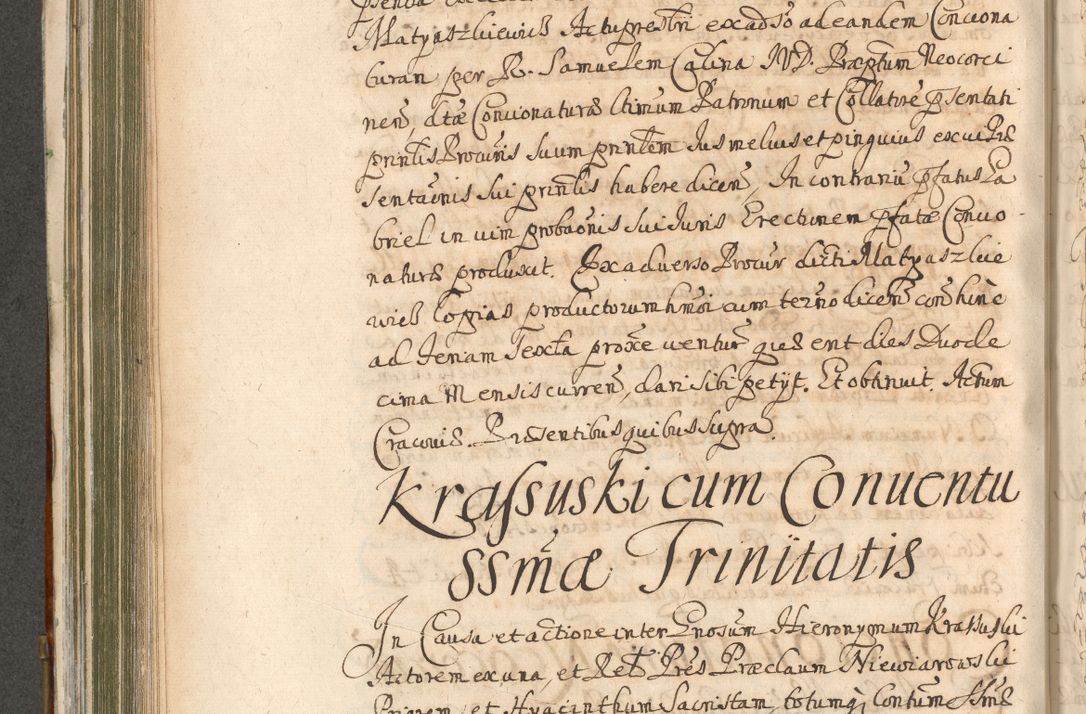 Matyaszkiewich Actu prestri ex adso ad eandem Conciona
turam per R. Samuelem Calina IVD. Præptum Neocorci
nen, dtæ Concionaturæ ltimum Patronum et Collatore psentati
prinlis Procuris suum prinlem Jus melius et pinguius ex vi Præ
sentaonis sui prinlis habere dicen, In contrariu pfatus Ga
briel in vim probaonis sui Juris Erectionem pfatæ Concio
naturæ produxit. Ex adverso Procur dicti Matyaszkie
wich Copias productorum hmoi cum termo dicen con hinc
ad Feriam Sexta proxe ventur quæ erit dies Duode
cima Mensis curren, dari sibi petijt. Et obtinuit. Actum
Cracoviæ. Præsentibus quibus supra.
Krassuski cum Conuentu
SSmæ Trinitatis
In Causa et actione inter Gnosum Hieronymum Krassuski
Actorem ex una, et Ret Pres Præclaum Niewiarowski
Priorem, et Hyacinthum Sacristam, totumq Contum SSmæ